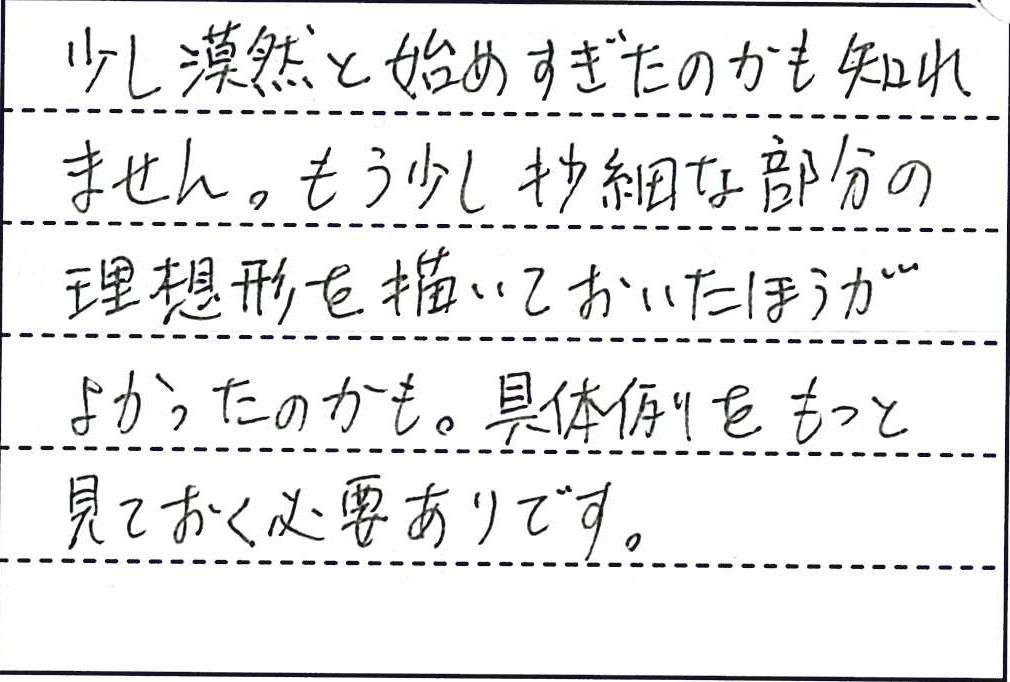 少し漠然と始めすぎたのかも知れ
ません。もう少し抄細な部分の
理想形を描いておいたほうが
よかったのかも。具体例をもっと
見ておく必要ありです。